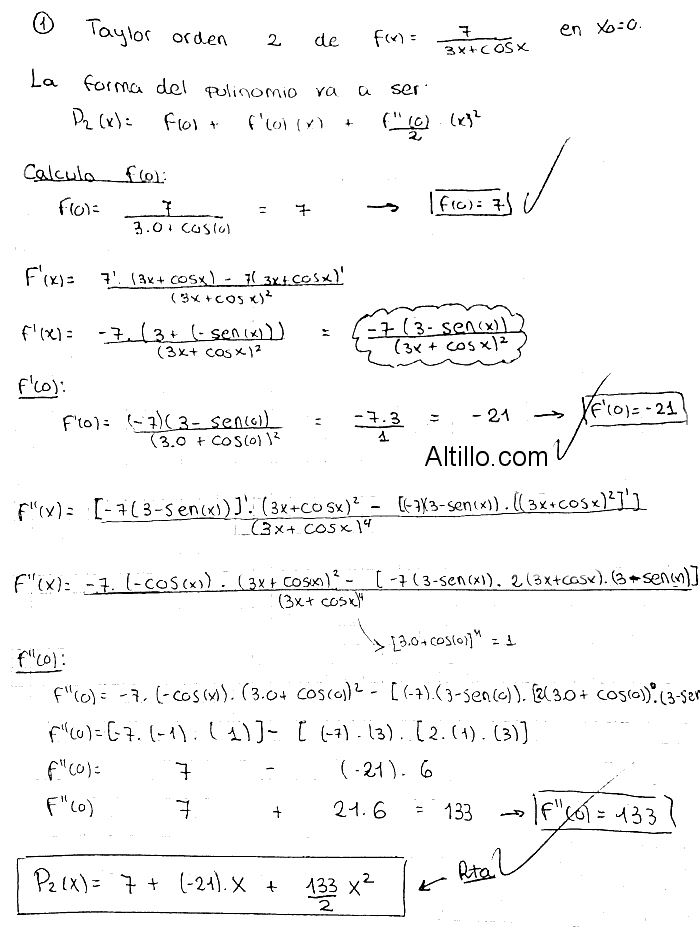 ① Taylor orden 2 de f(x) = 7/(3x+cosx) en x₀=0.
La forma del polinomio va a ser:
P₂(x) = f(0) + f'(0)(x) + f''(0)/2 · (x)²
Calculo f(0):
f(0) = 7/(3.0 + cos(0)) = 7 → f(0) = 7
F'(x) = (7'·(3x+cosx) - 7(3x+cosx)')/(3x+cosx)²
f'(x) = (-7·(3+(-sen(x))))/(3x+cosx)² = (-7(3-sen(x)))/(3x+cosx)²
f'(0):
F'(0) = ((-7)(3-sen(0)))/(3.0+cos(0))² = (-7.3)/1 = -21 → F'(0) = -21
Altillo.com
F''(x) = ([-7(3-sen(x))]'·(3x+cosx)² - [(-7)(3-sen(x))·[(3x+cosx)²]'])/(3x+cosx)⁴
F''(x) = (-7·(-cos(x))·(3x+cos(x))² - [-7(3-sen(x))·2(3x+cosx)·(3-sen(x))])/(3x+cosx)⁴
→ [3.0+cos(0)]⁴ = 1
f''(0):
f''(0) = -7·(-cos(x))·(3.0+cos(0))² - [(-7)·(3-sen(0))·[2(3.0+cos(0))·(3-sen
f''(0) = [-7·(-1)·(1)] - [(-7)·(3)·[2·(1)·(3)]
f''(0) = 7 - (-21)·6
F''(0) 7 + 21.6 = 133 → F''(0) = 133
P₂(x) = 7 + (-21)·x + 133/2 x² ← Rta